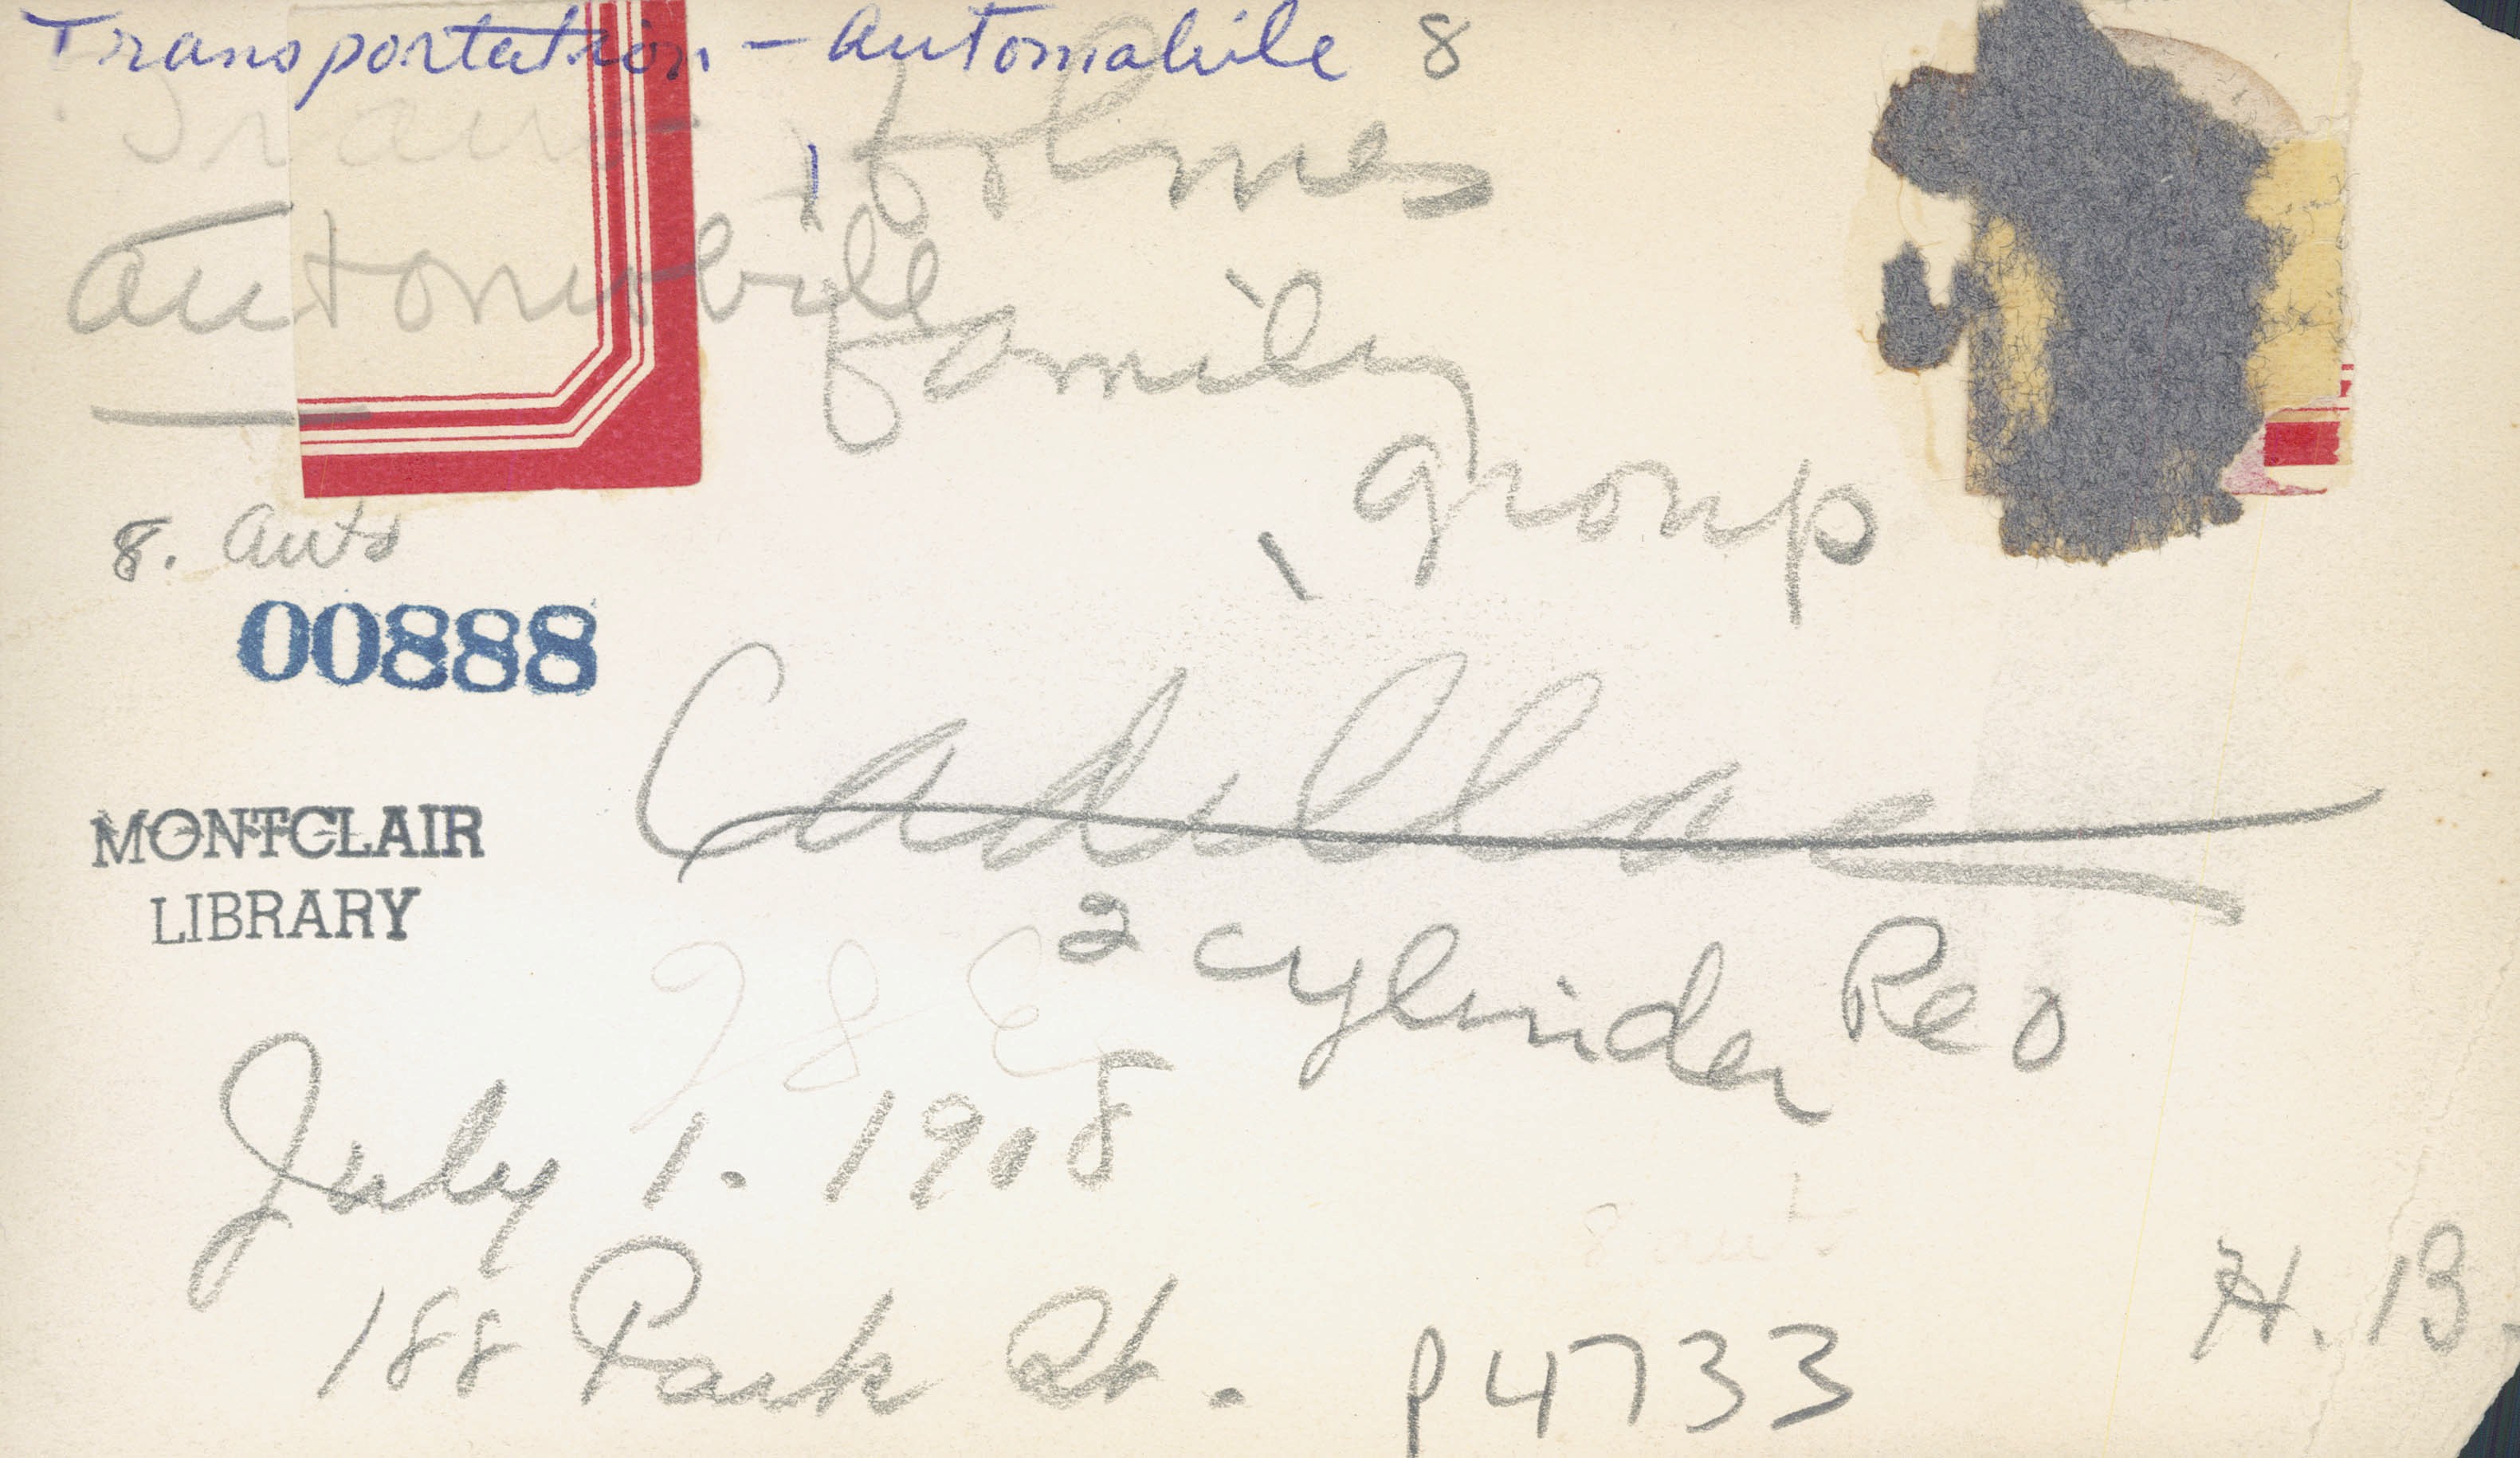 Transportation - Automobile 8
Trans
Holmes
Automobile
family
group
8. Auto
00888
Cadillac
MONTCLAIR
LIBRARY
2 cylinder Reo
July 1. 1908
188 Park St.
P4733
H. B.